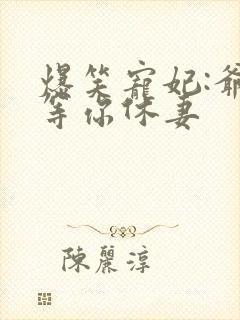 爆笑寵妃:爺
等你休妻
陳麗淳